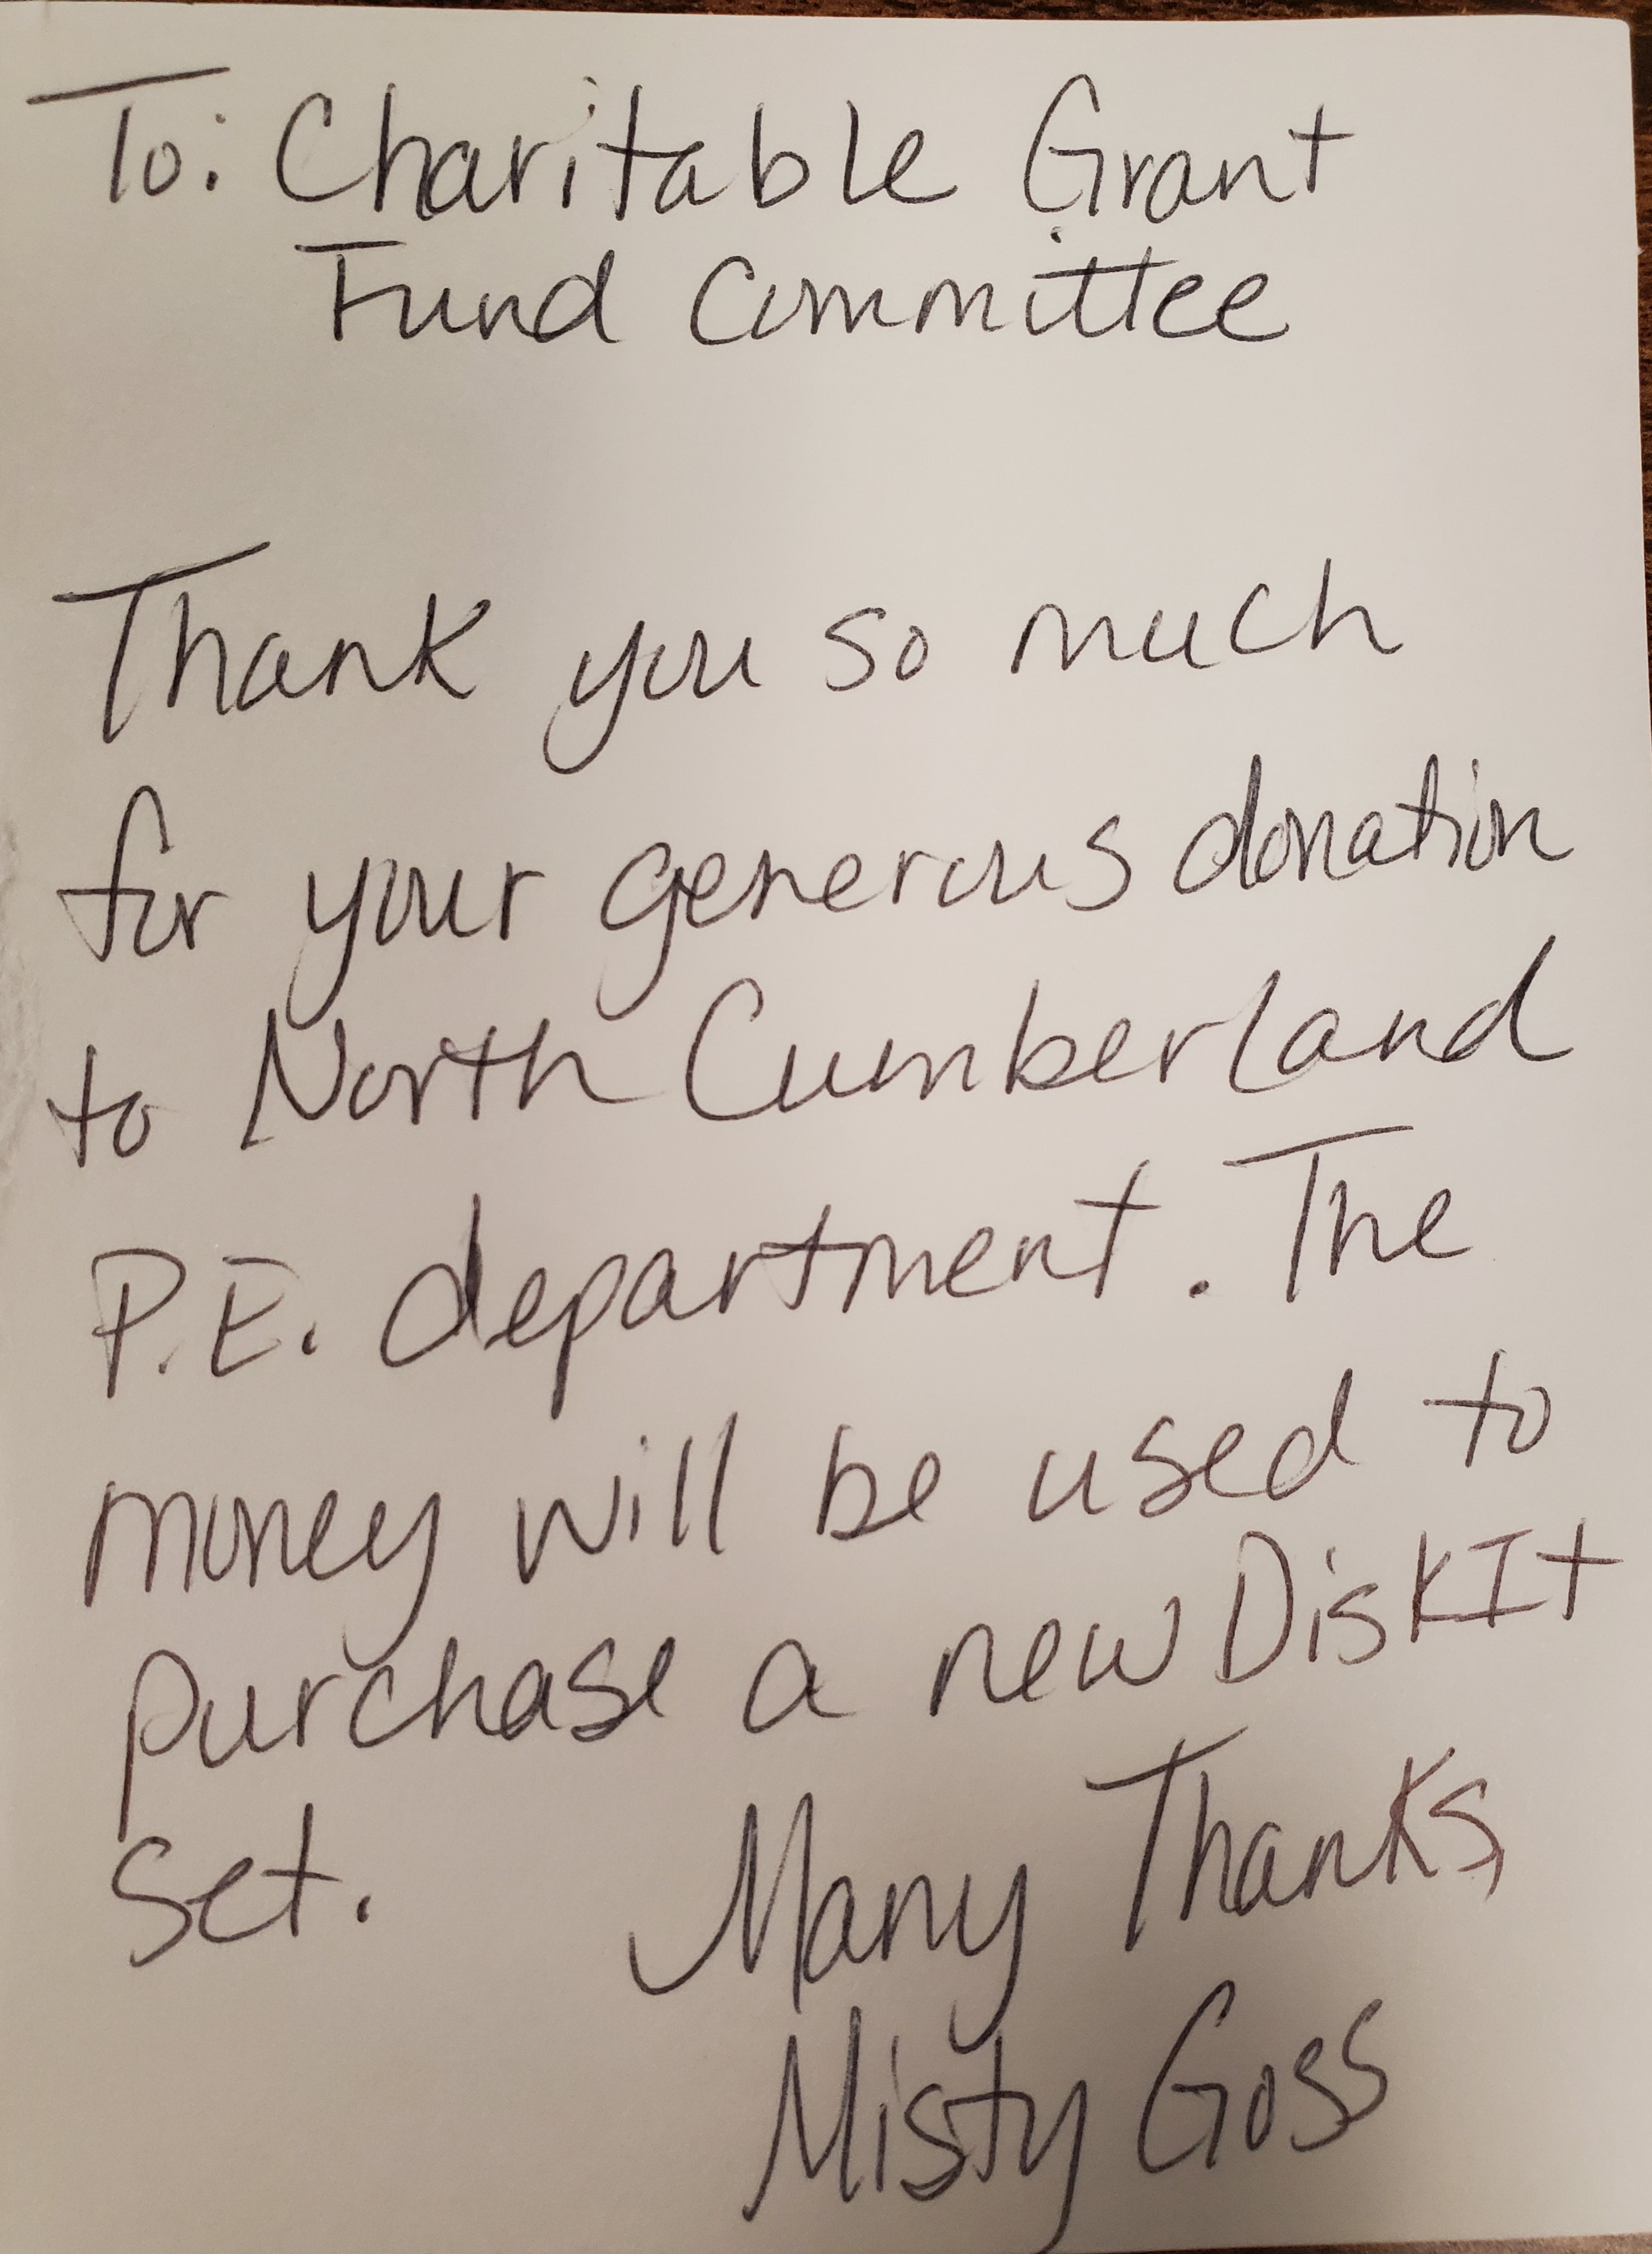 To: Charitable Grant
Fund Committee
Thank you so much
for your generous donation
to North Cumberland
P.E. department. The
money will be used to
purchase a new DisKIt
set.
Many Thanks,
Misty Goss